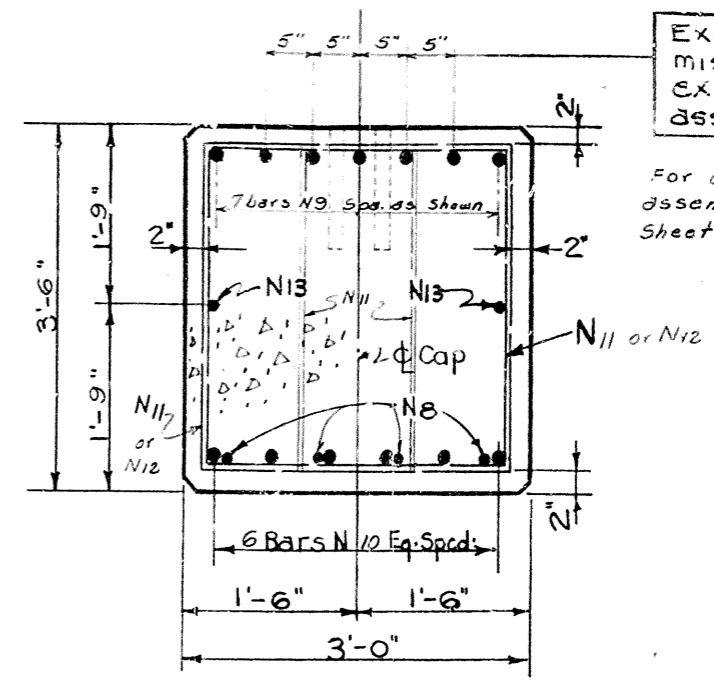 5" 5" 5" 5"
Ex
mis
ex
ass
2"
For
assem
Sheet
7 bars N9 Spa. as shown
1'-9"
2"
2"
3'-6"
N13
N11
N13
N11 or N12
℄ Cap
1'-9"
N11
or
N12
N8
2"
6 Bars N 10 Eq. Spcd.
1'-6"
1'-6"
3'-0"